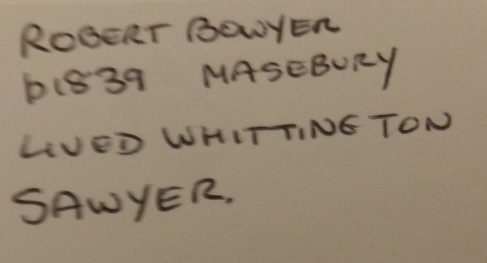 ROBERT BOWYER
b1839 MASEBURY
LIVED WHITTINGTON
SAWYER.